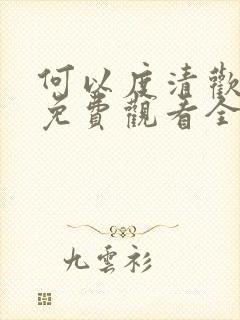 何以度清歡
免費觀看全
九雲衫